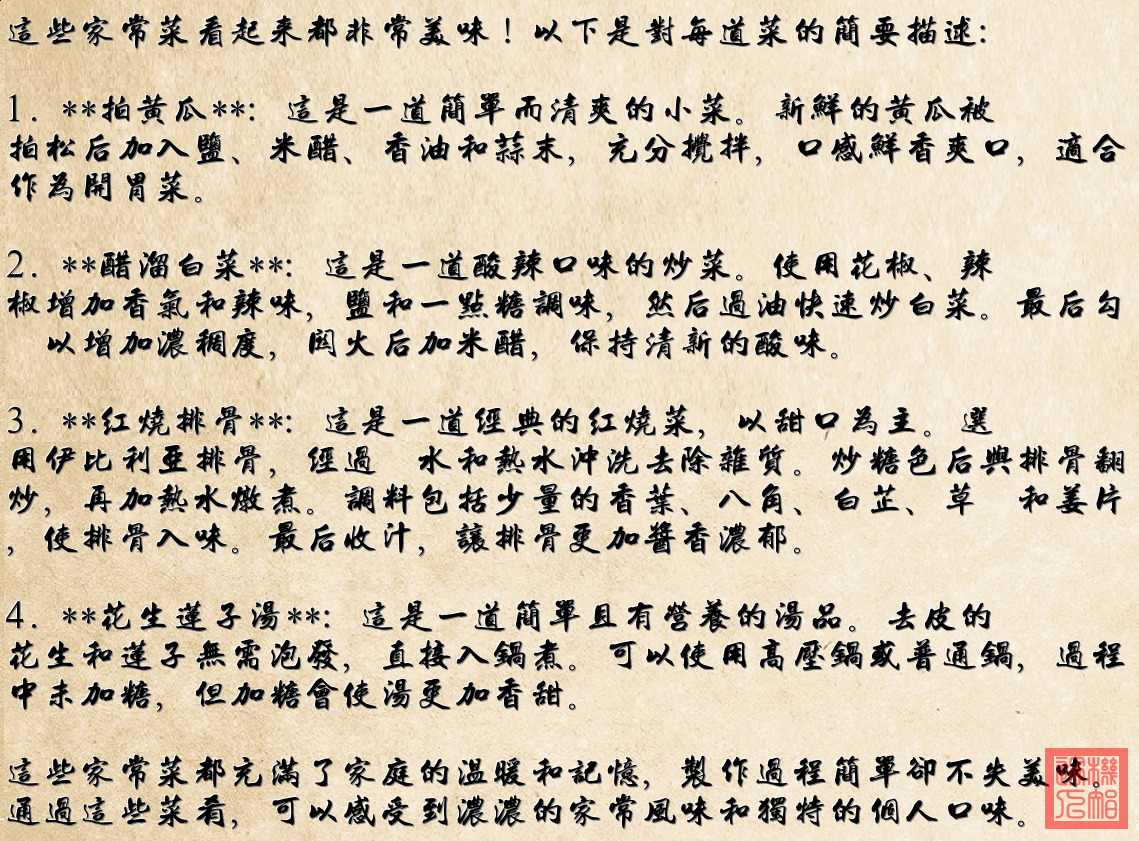 這些家常菜看起來都非常美味！以下是對每道菜的簡要描述：
1. **拍黃瓜**：這是一道簡單而清爽的小菜。新鮮的黃瓜被
拍松后加入鹽、米醋、香油和蒜末，充分攪拌，口感鮮香爽口，適合
作為開胃菜。
2. **醋溜白菜**：這是一道酸辣口味的炒菜。使用花椒、辣
椒增加香氣和辣味，鹽和一點糖調味，然后過油快速炒白菜。最后勾
以增加濃稠度，關火后加米醋，保持清新的酸味。
3. **紅燒排骨**：這是一道經典的紅燒菜，以甜口為主。選
用伊比利亞排骨，經過 水和熱水沖洗去除雜質。炒糖色后與排骨翻
炒，再加熱水燉煮。調料包括少量的香葉、八角、白芷、草 和姜片
，使排骨入味。最后收汁，讓排骨更加醬香濃郁。
4. **花生蓮子湯**：這是一道簡單且有營養的湯品。去皮的
花生和蓮子無需泡發，直接入鍋煮。可以使用高壓鍋或普通鍋，過程
中未加糖，但加糖會使湯更加香甜。
這些家常菜都充滿了家庭的溫暖和記憶，製作過程簡單卻不失美味。
通過這些菜肴，可以感受到濃濃的家常風味和獨特的個人口味。